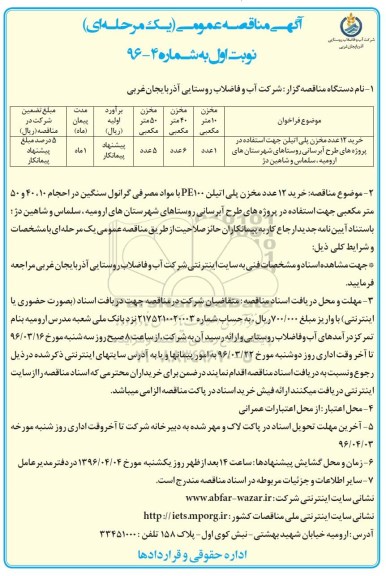 آگهی مناقصه عمومی (یک مرحله‌ای)
نوبت اول به شماره ۴-۹۶
شرکت آب و فاضلاب روستایی
آذربایجان غربی
۱- نام دستگاه مناقصه گزار: شرکت آب و فاضلاب روستایی آذربایجان غربی
موضوع فراخوان | مخزن ۱۰ متر مکعبی | مخزن ۴۰ متر مکعبی | مخزن ۵۰ متر مکعبی | برآورد اولیه (ریال) | مدت پیمان (ماه) | مبلغ تضمین شرکت در مناقصه (ریال)
خرید ۱۲ عدد مخزن پلی اتیلن جهت استفاده در پروژه های طرح آبرسانی روستاهای شهرستان های ارومیه، سلماس و شاهین دژ | ۱ عدد | ۶ عدد | ۵ عدد | پیشنهاد پیمانکار | ۱ ماه | ۵ درصد مبلغ پیشنهاد پیمانکار
۲- موضوع مناقصه: خرید ۱۲ عدد مخزن پلی اتیلن PE۱۰۰ با مواد مصرفی گرانول سنگین در احجام ۱۰، ۴۰ و ۵۰
متر مکعبی جهت استفاده در پروژه های طرح آبرسانی روستاهای شهرستان های ارومیه، سلماس و شاهین دژ؛
باستناد آیین نامه جدید ارجاع کار به پیمانکاران حائز صلاحیت از طریق مناقصه عمومی یک مرحله ای با مشخصات
و شرایط کلی ذیل:
* جهت مشاهده اسناد و مشخصات فنی به سایت اینترنتی شرکت آب و فاضلاب روستایی آذربایجان غربی مراجعه
فرمایید.
۳- مهلت و محل دریافت اسناد مناقصه: متقاضیان شرکت در مناقصه جهت دریافت اسناد (بصورت حضوری یا
اینترنتی) با واریز مبلغ ۷۰۰/۰۰۰ ریال، به حساب شماره ۲۱۷۵۲۱۰۰۲۰۰۳ نزد بانک ملی شعبه مدرس ارومیه بنام
تمرکز درآمدهای آب و فاضلاب روستایی و ارائه رسید آن به شرکت، از ساعت ۸ صبح روز سه شنبه مورخ ۹۶/۰۳/۱۶
تا آخر وقت اداری روز دوشنبه مورخ ۹۶/۰۳/۲۲ به امور پیمانها و یا به آدرس سایتهای اینترنتی ذکر شده در ذیل
رجوع و نسبت به دریافت اسناد مناقصه اقدام نمایند در ضمن برای خریداران محترمی که اسناد مناقصه را از سایت
اینترنتی دریافت میکنند ارائه فیش خرید اسناد در پاکت مناقصه الزامی میباشد.
۴- محل اعتبار: از محل اعتبارات عمرانی
۵- آخرین مهلت تحویل اسناد در پاکت لاک و مهر شده به دبیرخانه شرکت تا آخر وقت اداری روز شنبه مورخه
۹۶/۰۴/۰۳
۶- زمان و محل گشایش پیشنهادها: ساعت ۱۴ بعد از ظهر روز یکشنبه مورخ ۱۳۹۶/۰۴/۰۴ در دفتر مدیر عامل
۷- سایر اطلاعات و جزئیات مربوطه در اسناد مناقصه مندرج است.
نشانی سایت اینترنتی شرکت: www.abfar-wazar.ir
نشانی سایت اینترنتی ملی مناقصات کشور: http://iets.mporg.ir
آدرس: ارومیه خیابان شهید بهشتی - نبش کوی اول - پلاک ۱۵۸ تلفن: ۳۳۴۵۱۰۰۰
اداره حقوقی و قراردادها